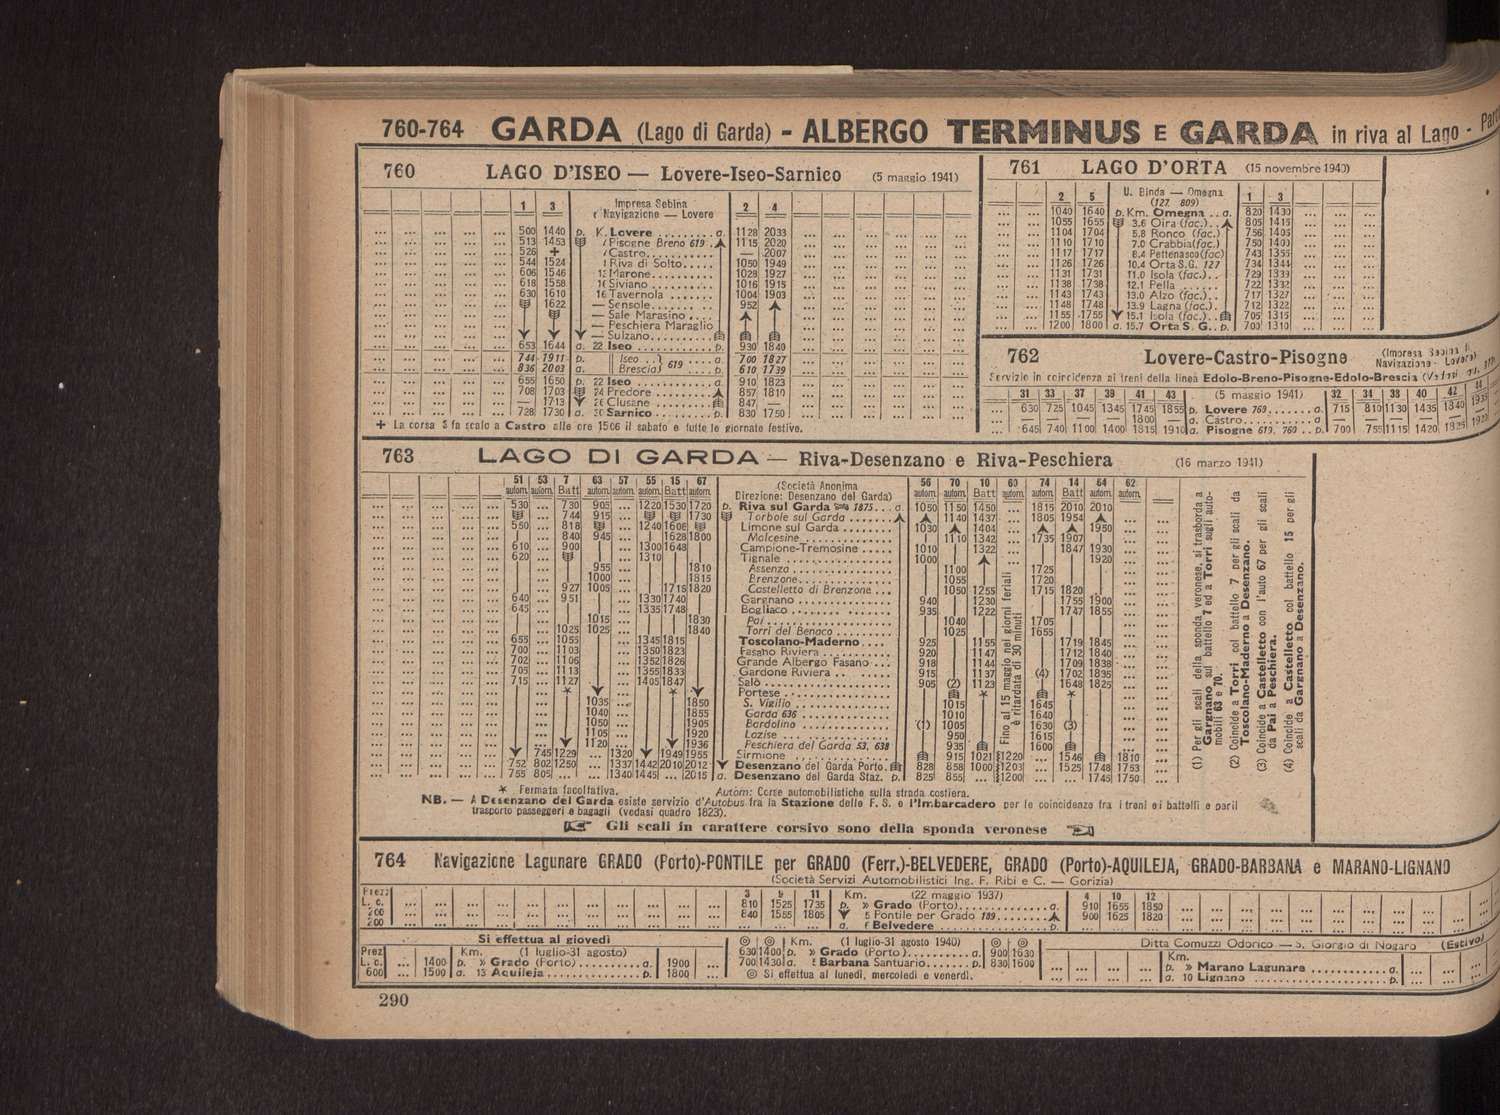 760-764 GARDA (Lago di Garda) - ALBERGO TERMINUS E GARDA in riva al Lago -
760 LAGO D'ISEO — Lovere-Iseo-Sarnico (5 maggio 1941)
1 3 Impresa Sebina 2 4
Navigazione — Lovere
500 1440 p. K. Lovere a. 1128 2033
513 1453 Pisogne Breno 619 1115 2020
526 + Castro — 2007
544 1524 Riva di Solto 1050 1949
606 1546 Marone 1028 1927
618 1558 Siviano 1016 1915
630 1610 16 Tavernola 1004 1903
1622 — Sensole 952
— Sale Marasino
— Peschiera Maraglio
— Sulzano
653 1644 a. 22 Iseo p. 930 1840
744 1911 p. Iseo a. 700 1827
836 2003 a. Brescia 619 p. 610 1739
655 1650 p. 22 Iseo a. 910 1823
708 1703 24 Predore 857 1810
— 1713 26 Clusane 847 —
728 1730 a. 30 Sarnico p. 830 1750
+ La corsa 3 fa scalo a Castro alle ore 1506 il sabato e tutte le giornate festive.
761 LAGO D'ORTA (15 novembre 1940)
2 5 U. Binda — Omegna 1 3
(127. 809)
1040 1640 p. Km. Omegna a. 820 1430
1055 1655 3.6 Oira (fac.) 805 1415
1104 1704 5.8 Ronco (fac.) 756 1405
1110 1710 7.0 Crabbia (fac.) 750 1400
1117 1717 8.4 Pettenasco (fac) 743 1355
1126 1726 10.4 Orta S.G. 127 734 1344
1131 1731 11.0 Isola (fac.) 729 1339
1138 1738 12.1 Pella 722 1332
1143 1743 13.0 Alzo (fac.) 717 1327
1148 1748 13.9 Lagna (fac.) 712 1322
1155 1755 15.1 Isola (fac.) 705 1315
1200 1800 a. 15.7 Orta S. G. p. 700 1310
762 Lovere-Castro-Pisogne (Impresa Sebina
Navigazione - Lovere)
Servizio in coincidenza ai treni della linea Edolo-Breno-Pisogne-Edolo-Brescia
31 33 37 39 41 43 (5 maggio 1941) 32 34 38 40 42 44
630 725 1045 1345 1745 1855 p. Lovere 769 a. 715 810 1130 1435 1840
— — — — 1800 — a. Castro a. — — — —
645 740 1100 1400 1815 1910 a. Pisogne 619, 760 p. 700 755 1115 1420 1825
763 LAGO DI GARDA — Riva-Desenzano e Riva-Peschiera (16 marzo 1941)
51 53 7 63 57 55 15 67 (Società Anonima 56 70 10 60 74 14 64 62
autom. autom. Batt autom. autom. autom. Batt autom. Direzione: Desenzano del Garda) autom. autom. Batt autom. autom. Batt autom. autom.
530 730 905 1220 1530 1720 p. Riva sul Garda 1875 a. 1050 1150 1450 1815 2010 2010
744 915 1730 Torbole sul Garda 1140 1437 1805 1954
550 818 1240 1606 Limone sul Garda 1030 1404 1950
840 945 1628 1800 Malcesine 1110 1342 1735 1907
610 900 1300 1648 Campione-Tremosine 1010 1322 1847 1930
620 1310 Tignale 1000 1920
955 1810 Assenza 1100 1725
1000 1815 Brenzone 1055 1720
927 1005 1715 1820 Castelletto di Brenzone 1050 1255 1715 1820
640 951 1330 1740 Gargnano 940 1230 1755 1900
645 1335 1748 Bogliaco 935 1222 1747 1855
1015 1830 Pai 1040 1705
1025 1025 1840 Torri del Benaco 1025 1655
655 1055 1345 1815 Toscolano-Maderno 925 1155 1719 1845
700 1103 1350 1823 Fasano Riviera 920 1147 1712 1840
702 1106 1352 1826 Grande Albergo Fasano 918 1144 1709 1838
705 1113 1355 1833 Gardone Riviera 915 1137 (4) 1702 1835
715 1127 1405 1847 Salò 905 (2) 1123 1648 1825
* * Portese * *
1035 1850 S. Vigilio 1015 1645
1040 1855 Garda 636 1010 1640
1050 1905 Bardolino (1) 1005 1630 (3)
1105 1920 Lazise 950 1615
1120 1936 Peschiera del Garda 53, 638 935 1600
745 1229 1320 1949 1955 Sirmione 915 1021 1220 1546 1810
752 802 1250 1337 1442 2010 2012 Desenzano del Garda Porto 828 858 1000 1203 1525 1748 1753
755 805 1340 1445 2015 a. Desenzano del Garda Staz. p. 825 855 1200 1745 1750
Fino al 15 maggio nei giorni feriali
è ritardata di 30 minuti
(1) Per gli scali della sponda veronese, si trasborda a
Gargnano sul battello 7 ed a Torri sugli auto-
mobili 63 e 70.
(2) Coincide a Torri col battello 7 per gli scali da
Toscolano-Maderno a Desenzano.
(3) Coincide a Castelletto con l'auto 67 per gli scali
da Pai a Peschiera.
(4) Coincide a Castelletto col battello 15 per gli
scali da Gargnano a Desenzano.
* Fermata facoltativa. Autom: Corse automobilistiche sulla strada costiera.
NB. — A Desenzano del Garda esiste servizio d'Autobus fra la Stazione delle F. S. e l'Imbarcadero per le coincidenze fra i treni ei battelli e per il
trasporto passeggeri e bagagli (vedasi quadro 1823).
Gli scali in carattere corsivo sono della sponda veronese
764 Navigazione Lagunare GRADO (Porto)-PONTILE per GRADO (Ferr.)-BELVEDERE, GRADO (Porto)-AQUILEJA, GRADO-BARBANA e MARANO-LIGNANO
(Società Servizi Automobilistici Ing. F. Ribi e C. — Gorizia)
Prezzi 3 9 11 Km. (22 maggio 1937) 4 10 12
L. c. 810 1525 1735 p. » Grado (Porto) a. 910 1655 1850
200 840 1555 1805 5 Pontile per Grado 189 900 1625 1820
200 a. Belvedere p.
Si effettua al giovedì
Prez. Km. (1 luglio-31 agosto)
L. c. 1400 p. » Grado (Porto) a. 1900
600 1500 a. 13 Aquileja p. 1800
Km. (1 luglio-31 agosto 1940)
630 1400 p. » Grado (Porto) a. 900 1630
700 1430 a. Barbana Santuario p. 830 1600
Si effettua al lunedì, mercoledì e venerdì.
Ditta Comuzzi Odorico — S. Giorgio di Nogaro (Estivo)
Km.
p. » Marano Lagunare a.
a. 10 Lignano p.
290